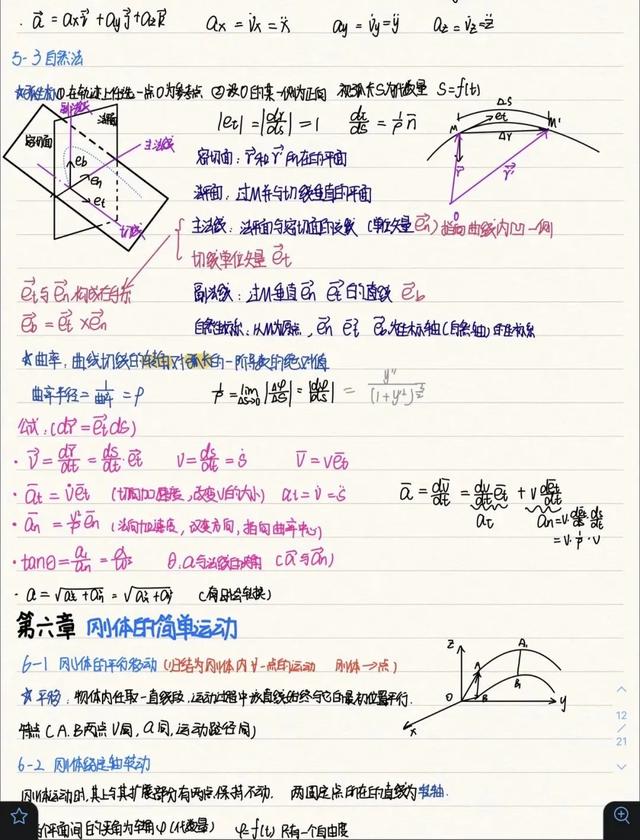 · a⃗ = axi⃗ + ayj⃗ + azk⃗    ax = v̇x = ẍ    ay = v̇y = ÿ    az = v̇z = z̈
5-3 自然法
①在轨迹上任选一点O为参考点 ②设O的某一侧为正向 视弧长S为代数量 S=f(t)
副法线 法面 密切面 主法线 切线 eb en et
|et| = |dr⃗/ds| = 1    = 1/ρ n⃗
M et ΔS M' Δr r⃗ r⃗' O
密切面: 所在的平面
法面: 过M并与切线垂直的平面
主法线: 法面与密切面的交线 (单位矢量 e⃗n) 指向曲线内凹一侧
切线单位矢量 e⃗t
e⃗t与e⃗n构成右手系
副法线: 过M垂直 e⃗n e⃗t 的直线 e⃗b
e⃗b = e⃗t × e⃗n
自然坐标: 以M为原点, e⃗n e⃗t e⃗b 为坐标轴(自然轴)的坐标系
☆曲率: 曲线切线的转角对弧长的一阶导数的绝对值
曲率半径 = 1/曲率 = ρ    1/ρ = lim ΔS→0 |Δφ/ΔS| = |dφ/dS| = y''/(1+y'²)^3/2
公式: (dr⃗ = e⃗t ds)
· v⃗ = dr⃗/dt = ds/dt · e⃗t    v = ds/dt = ṡ    v̄ = ve⃗t
· a⃗t = v̇e⃗t (切向加速度, 改变v的大小) at = v̇ = s̈
ā = dv̄/dt = dv/dt ēt + v dēt/dt
at    an = v·
= v·1/ρ·v
· a⃗n = v²/ρ e⃗n (法向加速度, 改变方向, 指向曲率中心)
· tanθ = at/an    θ: a与法线的夹角 (a⃗与a⃗n)
第六章 刚体的简单运动
6-1 刚体的平行移动 (归结为刚体内∀一点的运动 刚体→点)
☆平移: 物体内任取一直线段, 运动过程中该直线始终与它的最初位置平行.
特点 (A.B两点V同, a同, 运动路径同)
z A A₁ B B₁ O y x
6-2 刚体绕定轴转动
刚体运动时, 其上与其扩展部分有两点保持不动. 两固定点所在的直线为转轴.
平面间的夹角为转角φ (代数量) φ=f(t) 只有一个自由度
12
/
21